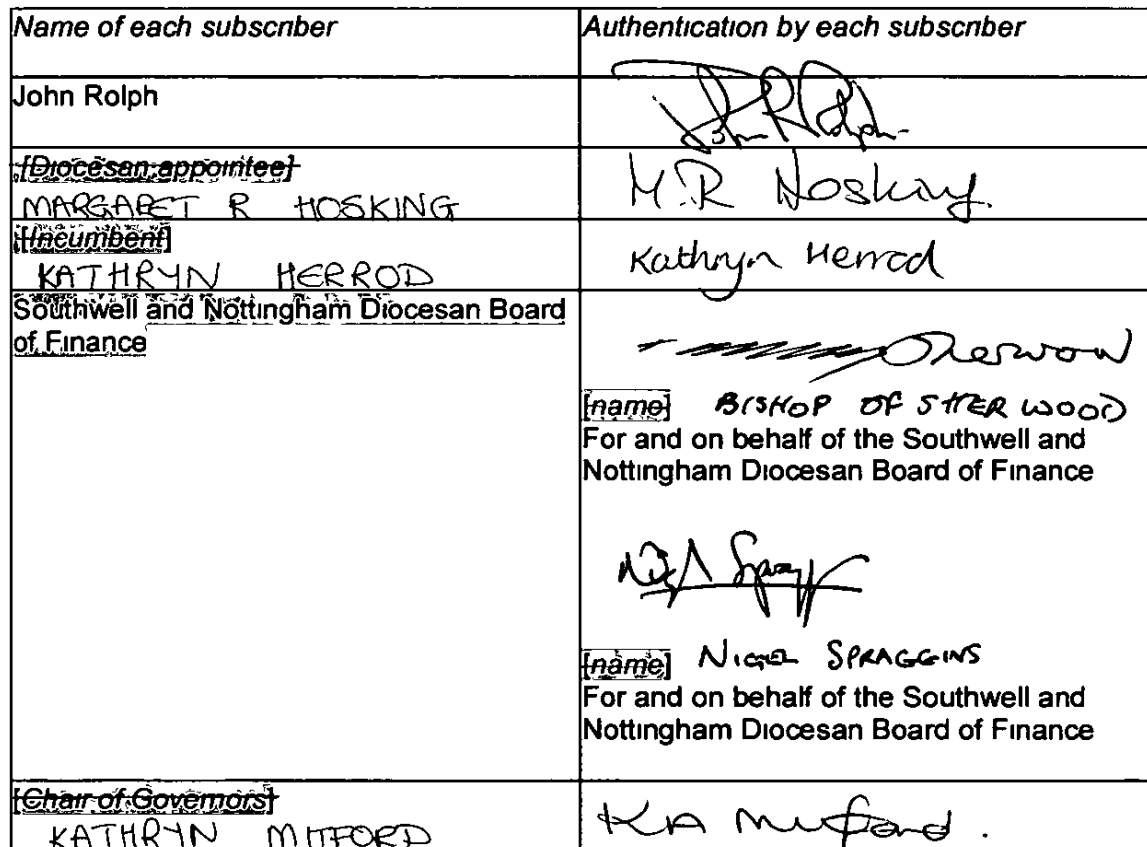 Name of each subscriber
Authentication by each subscriber
John Rolph
John R Rolph
[Diocesan appointee]
MARGARET R HOSKING
M.R Hosking.
[Incumbent]
KATHRYN HERROD
Kathryn Herrod
Southwell and Nottingham Diocesan Board
of Finance
Sherwood
[name] BISHOP OF SHERWOOD
For and on behalf of the Southwell and
Nottingham Diocesan Board of Finance
[name] NIGEL SPRAGGINS
For and on behalf of the Southwell and
Nottingham Diocesan Board of Finance
[Chair of Governors]
KATHRYN MITFORD
KA Mitford.